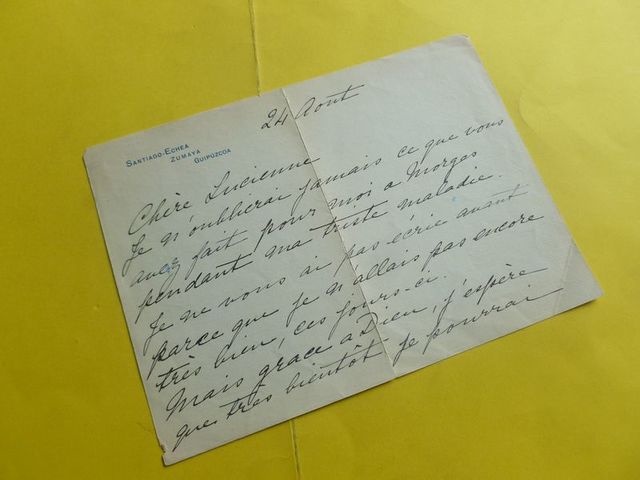 SANTIAGO-ECHEA
ZUMAYA
GUIPUZCOA
24 Aout
Chère Lucienne
Je n'oublierai jamais ce que vous
avez fait pour moi a Morges
pendant ma triste maladie.
Je ne vous ai pas écrie avant
parce que je n'allais pas encore
très bien, ces jours-ci.
Mais grace a Dieu, j'espère
que très bientôt je pourrai